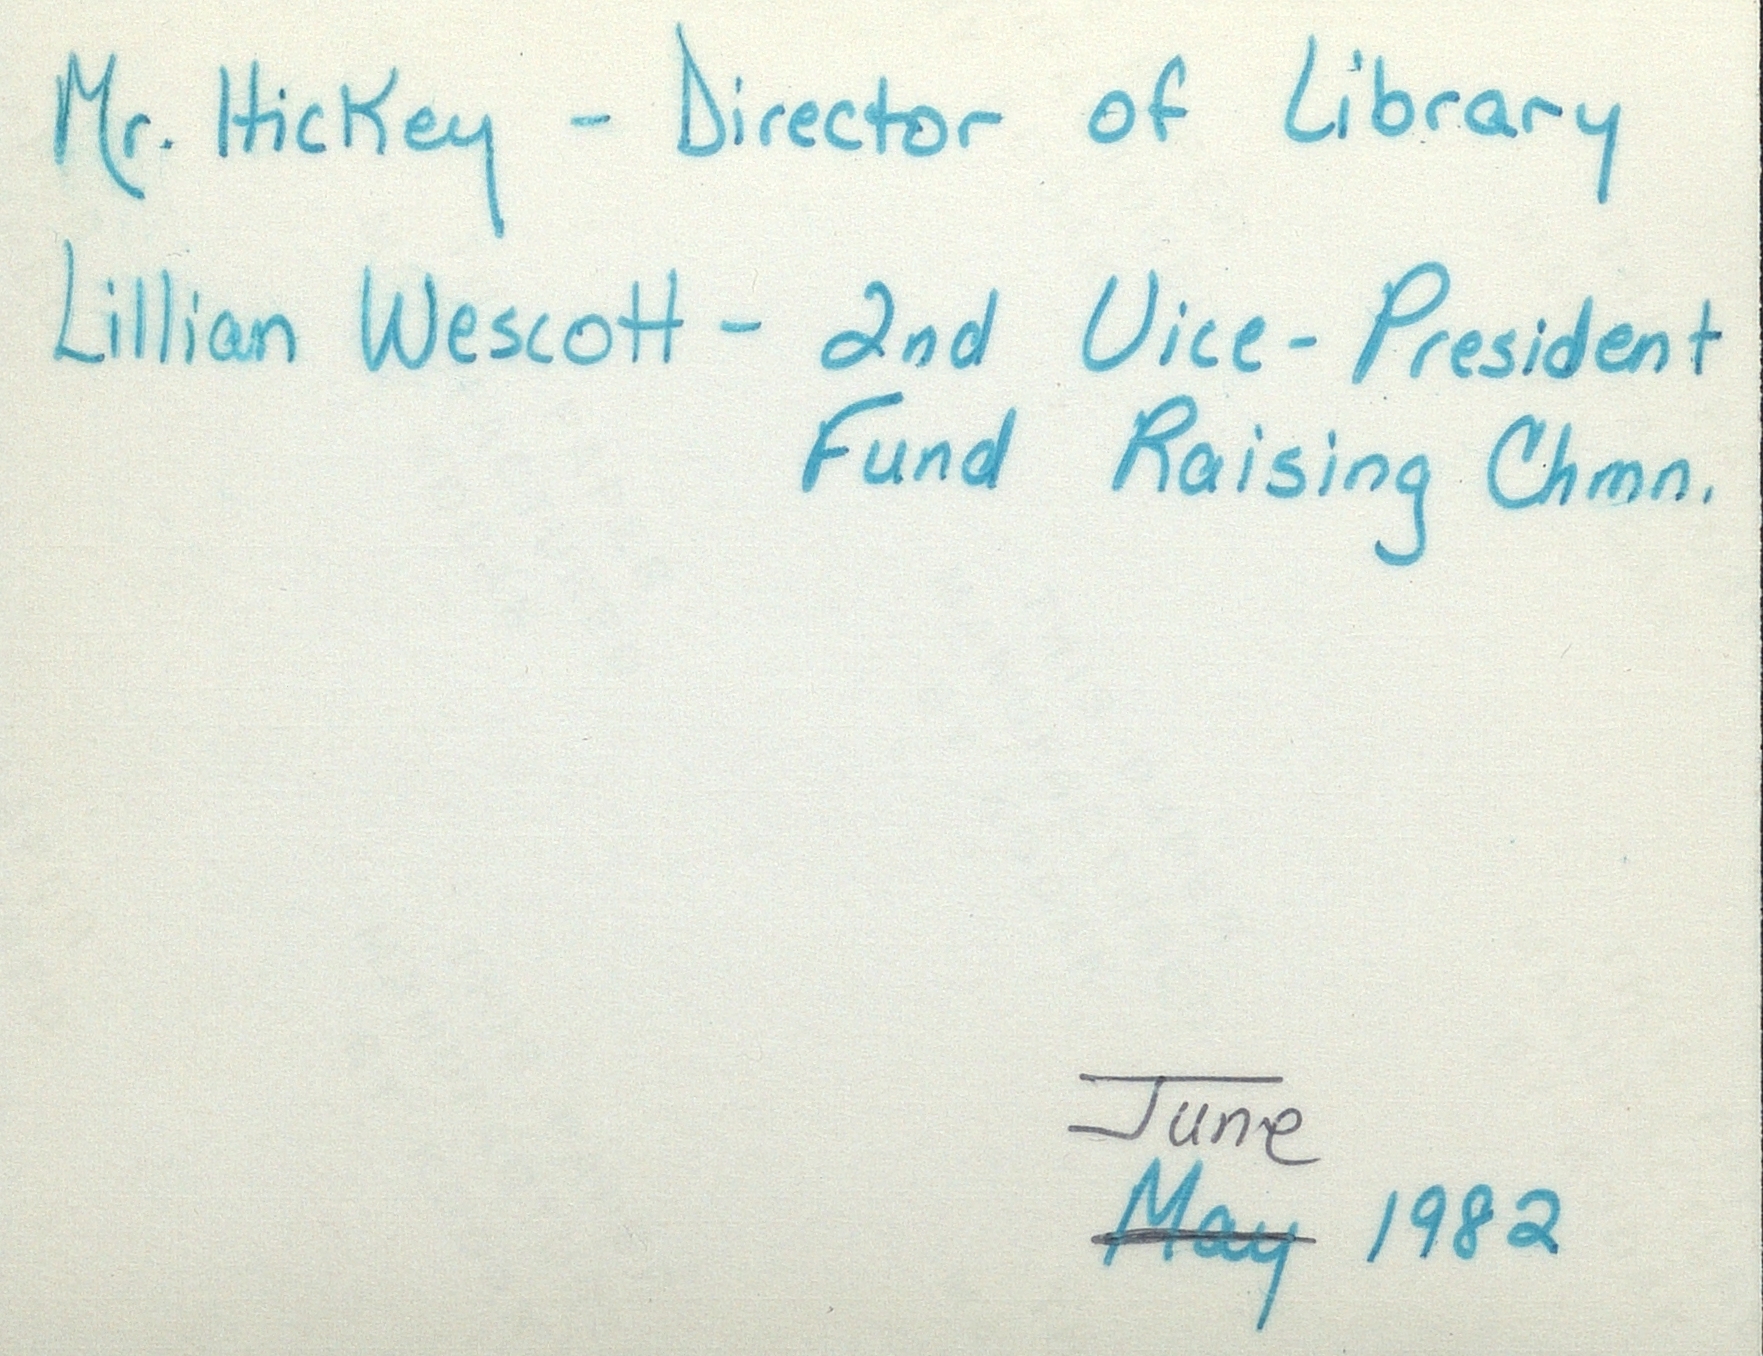 Mr. Hickey - Director of Library
Lillian Wescott - 2nd Vice-President
Fund Raising Chmn.
June
May 1982